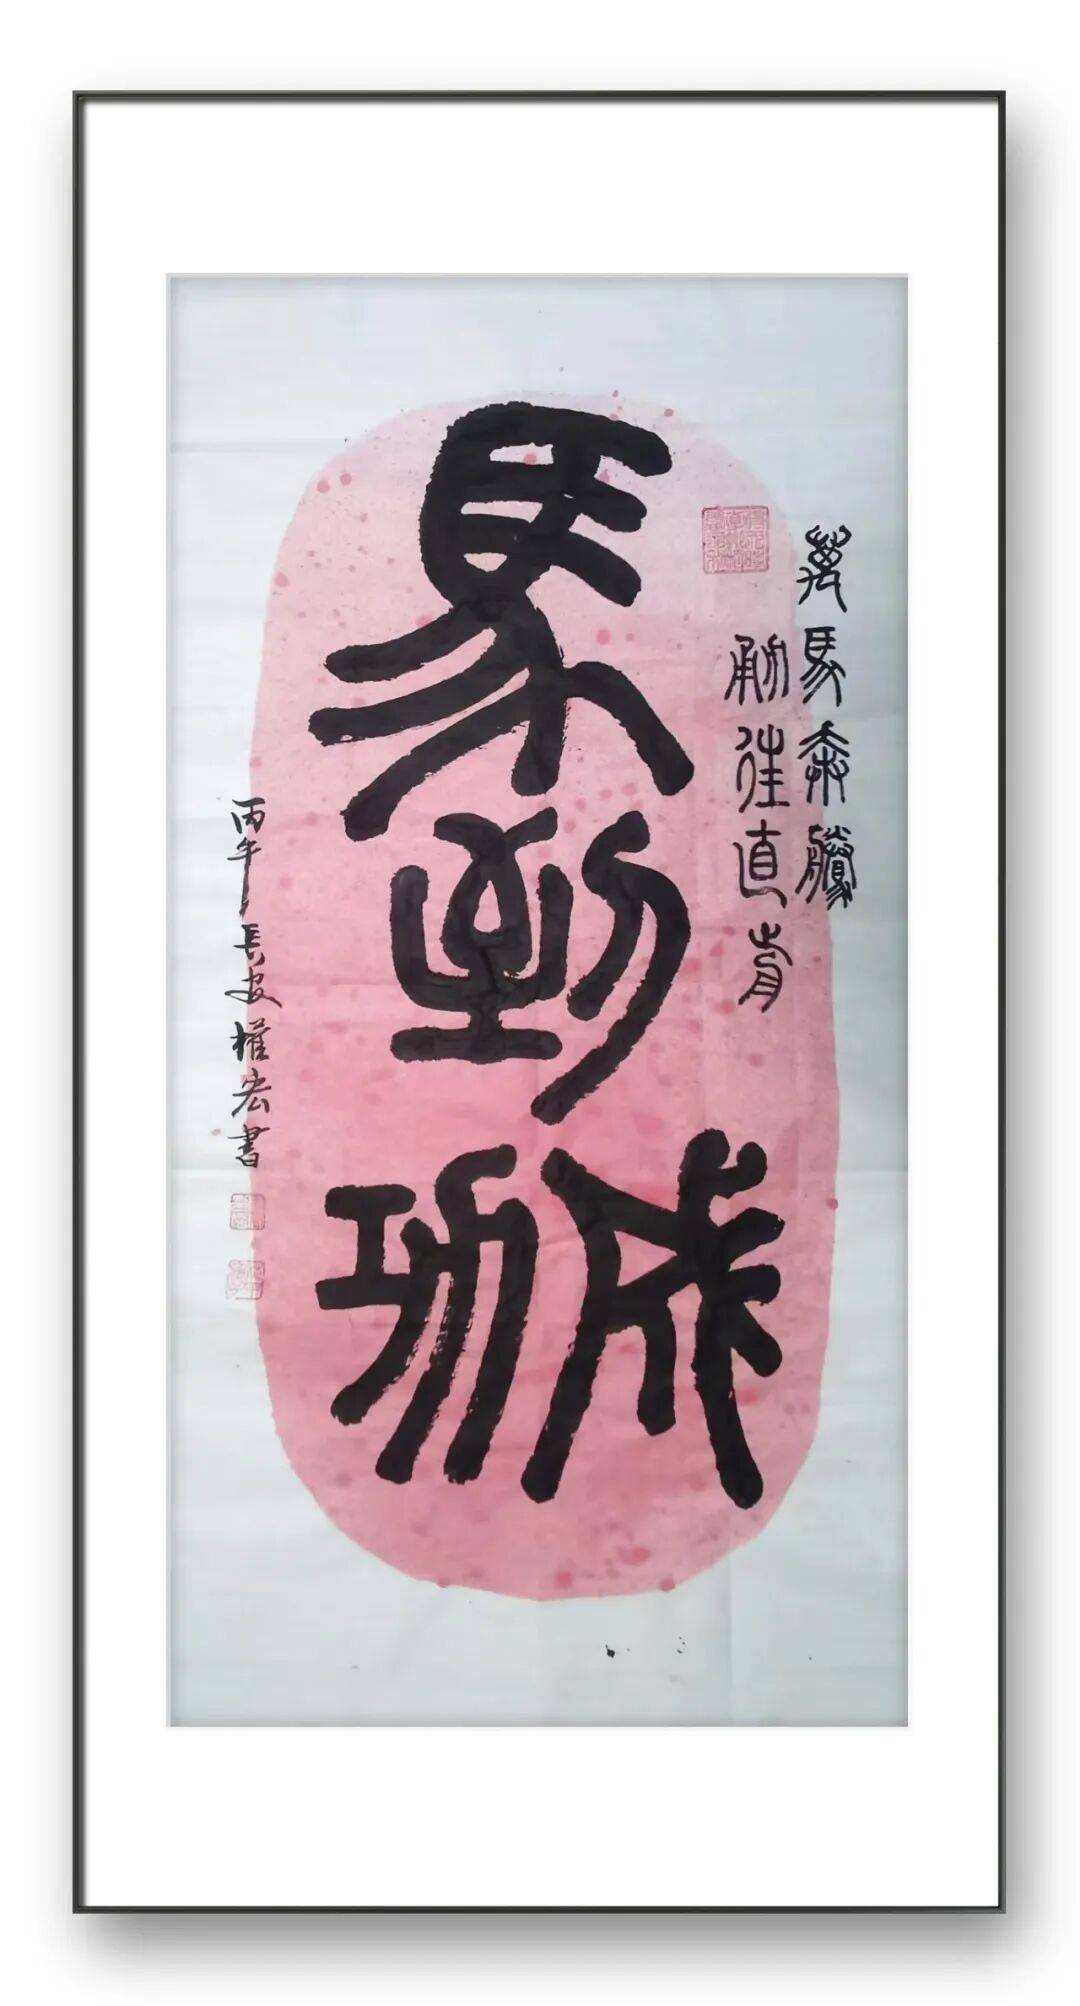 萬馬奔騰
勇往直前
馬到
成功
丙午長安權宏書